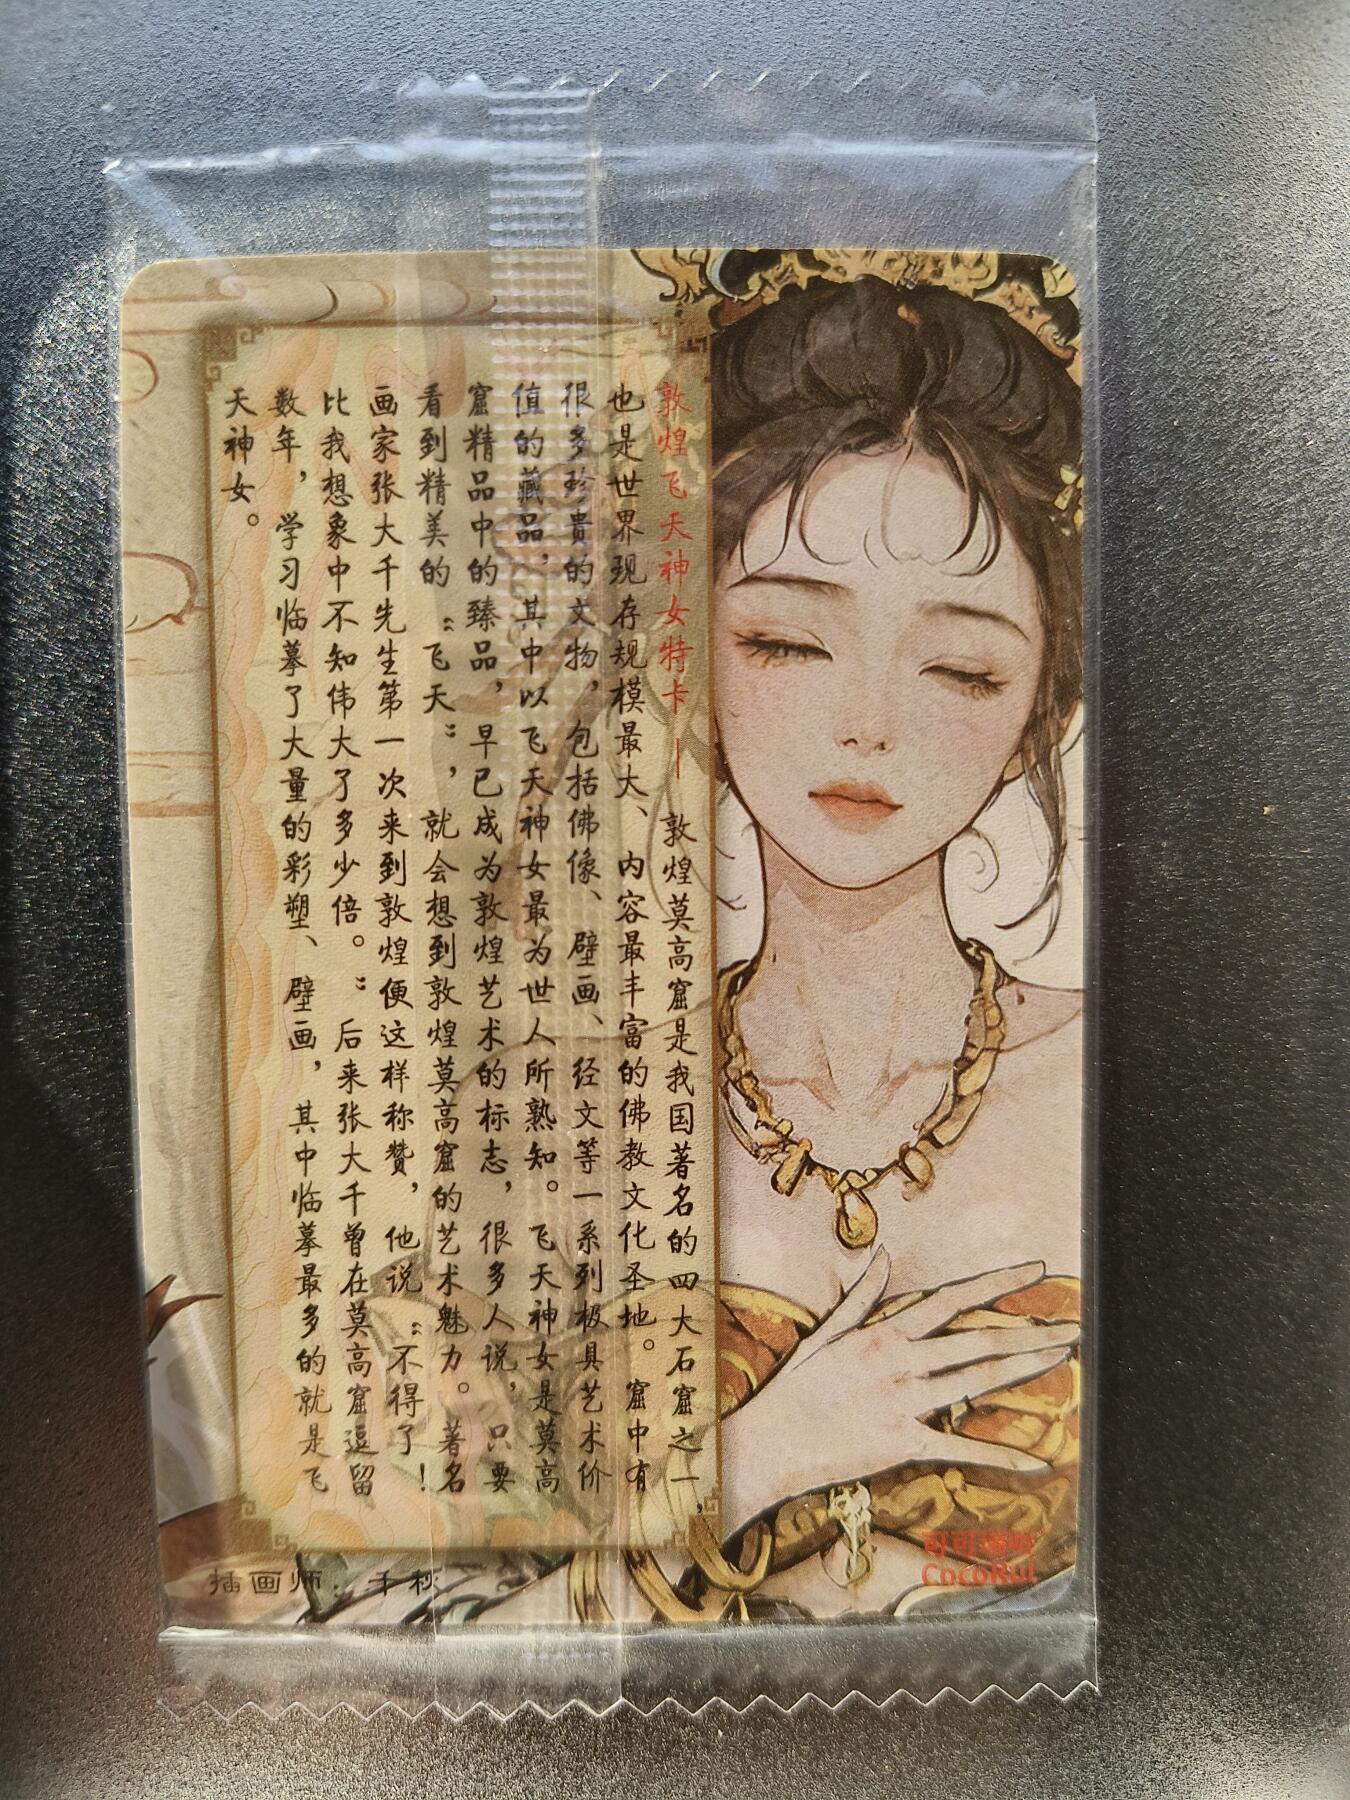 敦煌飞天神女特卡｜敦煌莫高窟是我国著名的四大石窟之一，
也是世界现存规模最大、内容最丰富的佛教文化圣地。窟中有
很多珍贵的文物，包括佛像、壁画、经文等一系列极具艺术价
值的藏品，其中以飞天神女最为世人所熟知。飞天神女是莫高
窟精品中的臻品，早已成为敦煌艺术的标志，很多人说，只要
看到精美的“飞天”，就会想到敦煌莫高窟的艺术魅力。著名
画家张大千先生第一次来到敦煌便这样称赞，他说“不得了！
比我想象中不知伟大了多少倍。”后来张大千曾在莫高窟逗留
数年，学习临摹了大量的彩塑、壁画，其中临摹最多的就是飞
天神女。
插画师：千秋
可可瑞
CocoRui